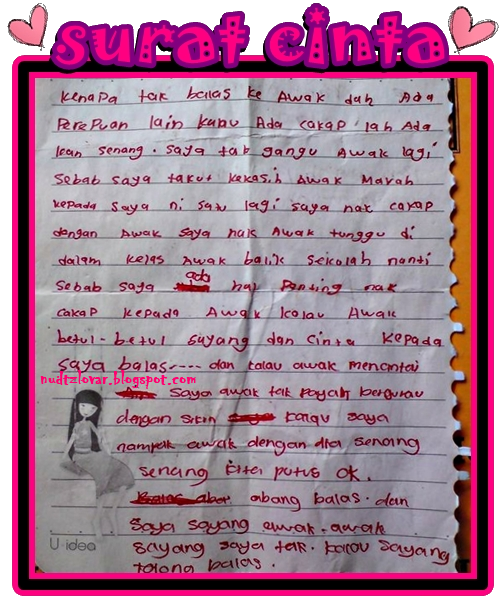 surat cinta
kenapa tak balas ke Awak dah Ada
Perepuan lain kalau Ada cakap lah Ada
kan senang. saya tak gangu Awak lagi
sebab saya takut kekasih Awak Marah
kepada saya ni satu lagi saya nak cakap
dengan Awak saya nak Awak tunggu di
dalam kelas Awak balik sekolah nanti
sebab saya ada hal Penting nak
cakap kepada Awak kalau Awak
betul-betul sayang dan cinta kepada
saya balas---- dan kalau awak mencintai
nudtzlovar.blogspot.com
saya awak tak payah bergurau
dengan kalau saya
nampak awak dengan dia senang
senang kita putus ok.
abang balas. dan
saya sayang awak. awak
sayang saya tak. kalau sayang
tolong balas.
U-idea